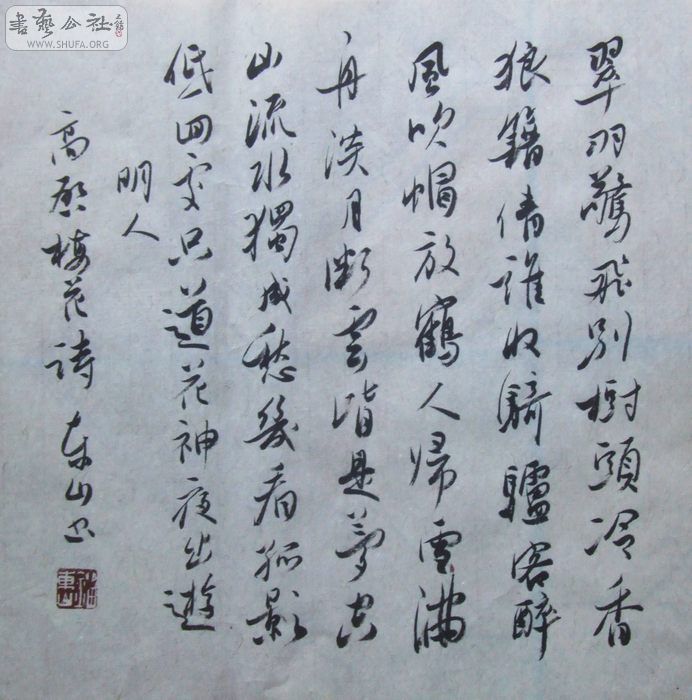 書藝公社
WWW.SHUFA.ORG
翠羽驚飛別樹頭冷香
狼籍倩誰收騎驢客醉
風吹帽放鶴人歸雪滿
舟淡月斷雲皆是夢空
山流水獨成愁幾看孤影
低回處只道花神夜出遊
明人
高啟梅花詩 東山書